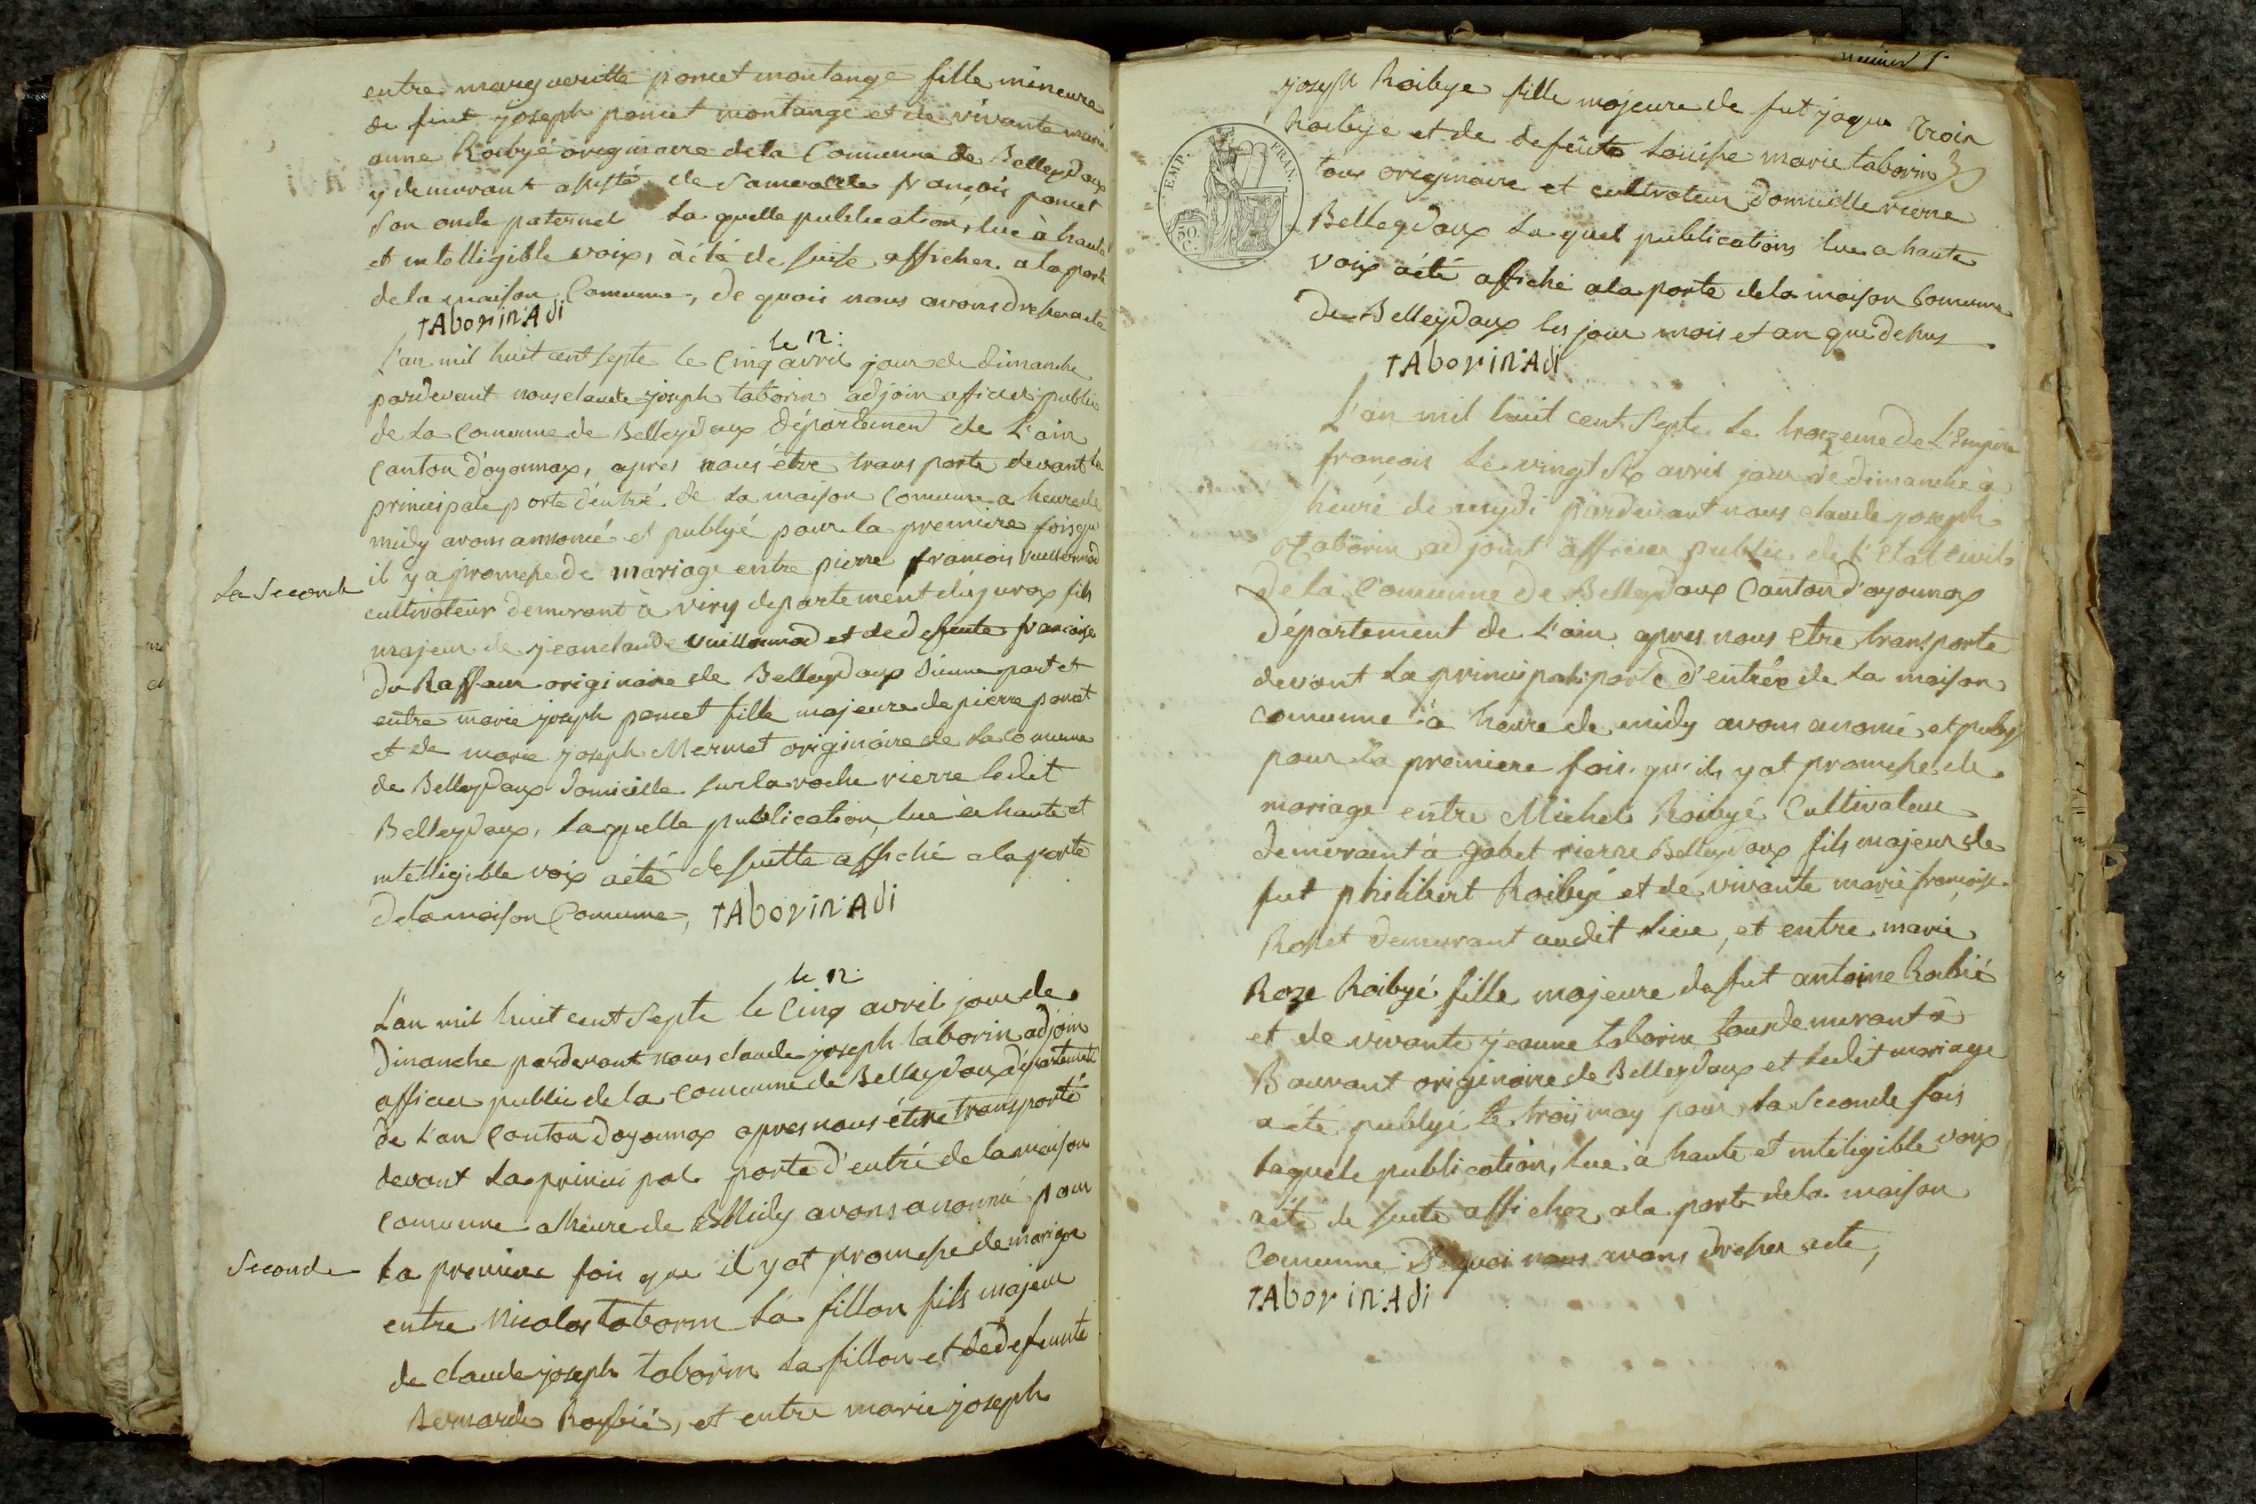 entre margueritte poncet montange fille mineure
de feut joseph poncet montange et de vivante marie
anne Roibyé originaire dela Comunne de Belleydoux
y demurant assisté de françois poncet
son oncle paternel la quelle publication, lue à haute
et intelligible voix, àété de suite afficher a la porte
dela maison Comunne, de quoi nous avons dresser acte
tAboriniAdi
le 12
L'an mil huit cent septe le Cinq avril jour de dimanche
pardevant nous claude joseph taborin adjoin aficier public
de la Comunne de Belleydoux département de L'ain
Canton d'oyonnax, apres nous être transporte devant la
principale porte d'entré de la maison Comunne a heure de
midy avons annoncé et publyé pour la premiere fois qu
il y a promesse de mariage entre pierre francois Vuillermod
La Seconde
cultivateur demurant à viry departement du jurax fils
majeur de jeanclaude vuillermod et de defunte francoise
du Raffour originaire de Belleydoux d'unne part et
entre marie joseph poncet fille majeure de pierre poncet
et de marie joseph Mermet originaire de la comunne
de Belleydoux domicille sur la roche rierre ledit
Belleydoux, laquelle publication lue à haute et
intelligible voix àété de suitte affiché a la porte
dela maison Comunne, tAboriniAdi
le 12
L'an mil huit cent septe le Cinq avril jour de
dimanche pardevant nous claude joseph taborin adjoin
afficier public de la Comunne de Belleydoux département
de L'an Canton d'oyonnax apres nous être transporté
devant la principal porte d'entré de la maison
Comunne a lheure de Midy avons anonné pour
Seconde
la premiere fois que il y at promesse de mariage
entre Nicolas taborin la fillon fils majeur
de claude joseph taborin la fillon et de defunte
Bernarde Roybié, et entre marie joseph
joseph Roibye fille majeure de fut jaque
Roibye et de defeute Louise marie taborin
tous originaire et cultivateur domicille rierre
Belleydoux la quel publications lue a haute
voix àété affiché a la porte dela maison Comunne
de Belleydoux les jour mois et an que desus
tAboriniAdi
EMP. FRAN.
50 C.
L'an mil huit cent Septe le troizeme de L'Empire
francois le vingt six avril jour de dimanche à
heure de mydi pardevant nous claude joseph
Taborin adjoint afficier public de l'etat civil
de la Comunne de Belleydoux Canton d'oyonnax
département de L'ain apres nous etre transporte
devant la principale porte d'entrée de la maison
comunne à heure de midy avons anoncé et publyé
pour la premiere fois qu'il y at promesse de
mariage entre Michel Roibyé Cultivateur
demurant à gobet rierre Belleydoux fils majeur de
fut philibert Roibyé et de vivante marie francoise
Rosset demurant audit lieu, et entre marie
Roze Roibyé fille majeure de fut antoine Robié
et de vivante jeanne taborin tous demurant à
Bouvant originaire de Belleydoux et ledit mariage
a été publyé le trois may pour la Seconde fois
laquele publication, lue à haute et inteligible voix
àété de suite afficher a la porte dela maison
Comunne De quoi nous avons dresser acte,
tAboriniAdi